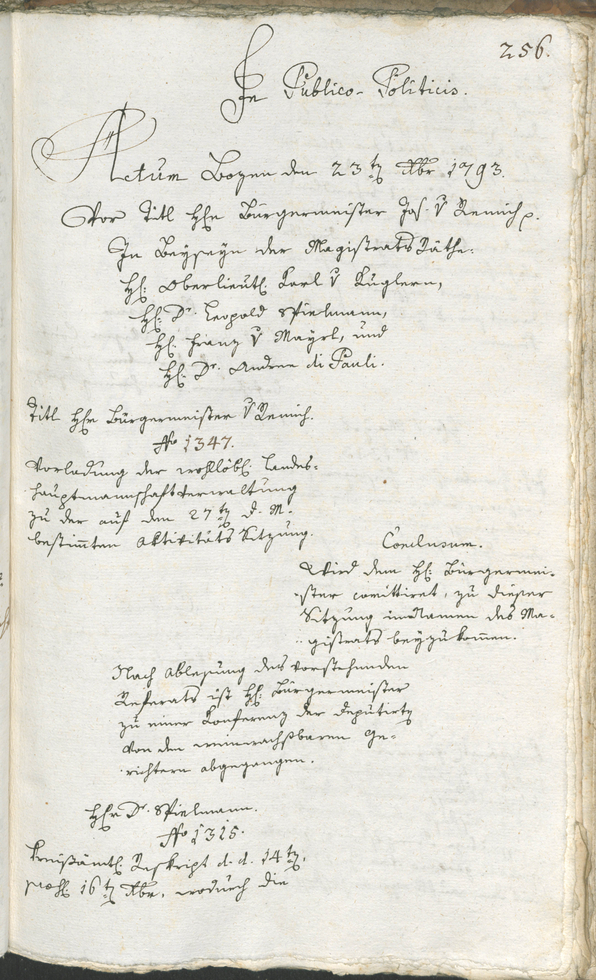 256.
In Publico-Politicis.
Actum Bozen den 23ten Xbr 1793.
Vor Titl Hhn Bürgermeister Jos. v Remich p.
In Beyseyn der Magistrats Räthe.
HH: Oberlieutt. Karl v Kuglern,
HH: Dr. Leopold Spielmann,
HH: Franz v Mayrl, und
HH: Dr. Andree di Pauli.
Titl Hhn Bürgermeister v Remich.
No 1347.
Vorladung der wohllöbl. Landes-
hauptmannschaftsverwaltung
zu der auf den 27ten d. M.
bestimten Aktivitäts Sitzung.
Conclusum.
Wird dem HH: Bürgermei-
ster comittiret, zu dieser
Sitzung im Namen des Ma-
gistrats beyzukomen.
Nach Ablesung des vorstehenden
Referats ist HH: Bürgermeister
zu einer Konferenz der Deputirten
von den weinwachsbaren Ge-
richtern abgegangen.
Hhr Dr. Spielmann.
No 1315.
Kreisämtl. Reskript d. d. 14ten,
16ten Xbr, wodurch die